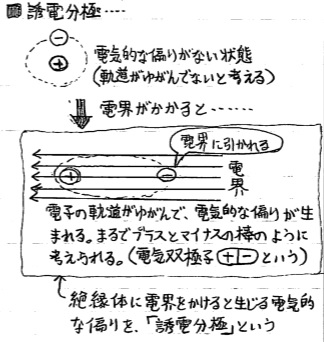 誘電分極‥‥
電気的な偏りがない状態
(軌道がゆがんでないと考える)
電界がかかると‥‥‥
電界に引かれる
電界
電子の軌道がゆがんで、電気的な偏りが生
まれる。まるでプラスとマイナスの棒のように
考えられる。(電気双極子 + - という)
絶縁体に電界をかけると生じる電気的
な偏りを、「誘電分極」という